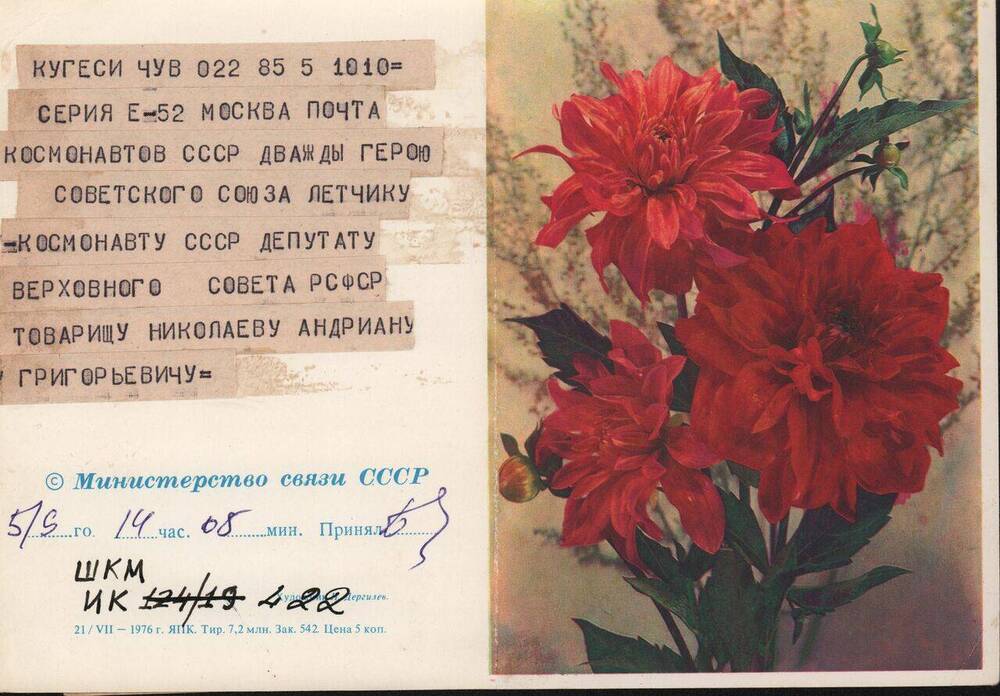 КУГЕСИ ЧУВ 022 85 5 1010=
СЕРИЯ Е-52 МОСКВА ПОЧТА
КОСМОНАВТОВ СССР ДВАЖДЫ ГЕРОЮ
СОВЕТСКОГО СОЮЗА ЛЕТЧИКУ
=КОСМОНАВТУ СССР ДЕПУТАТУ
ВЕРХОВНОГО СОВЕТА РСФСР
ТОВАРИЩУ НИКОЛАЕВУ АНДРИАНУ
ГРИГОРЬЕВИЧУ=
© Министерство связи СССР
5/9 го 14 час. 08 мин. Принял
ШКМ
ИК 124/19 422
Дергилев.
21/VII — 1976 г. ЯПК. Тир. 7,2 млн. Зак. 542. Цена 5 коп.